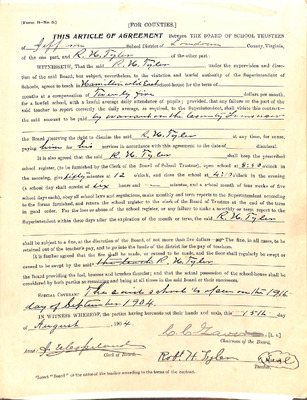 (Form B—No. 9.)
[FOR COUNTIES.]
THIS ARTICLE OF AGREEMENT BETWEEN THE BOARD OF SCHOOL TRUSTEES
of Jefferson School District of Loudoun County, Virginia,
of the one part, and R. H. Tyler of the other part.
WITNESSETH, That the said R. H. Tyler under the supervision and direc-
tion of the said Board, but subject, nevertheless, to the visitation and lawful authority of the Superintendent of
Schools, agrees to teach in Hamilton Col school-house for the term of
months at a compensation of Twenty five dollars per month,
for a lawful school, with a lawful average daily attendance of pupils; provided, that any failure on the part of the
said teacher to report correctly the daily average, as required, to the Superintendent, shall vitiate this contract—
the said amount to be paid by warrant on the County Treasurer
the Board reserving the right to dismiss the said R. H. Tyler at any time, for cause,
paying him for his services in accordance with this agreement to the date of dismissal.
It is also agreed that the said R. H. Tyler shall keep the prescribed
school register, (to be furnished by the Clerk of the Board of School Trustees), open school at o'clock in
the morning, give intermission at 12 o'clock, and close the school at o'clock in the evening
(a school day shall consist of six hours and minutes, and a school month of four weeks of five
school days each), obey all school laws and regulations, make monthly and term reports to the Superintendent according
to the forms furnished, and return the school register to the clerk of the Board of Trustees at the end of the term
in good order. For the loss or abuse of the school register, or any failure to make a monthly or term report to the
Superintendent within three days after the expiration of the month or term, the said R. H. Tyler
shall be subject to a fine, at the discretion of the Board, of not more than five dollars—said fine, in all cases, to be
retained out of the teacher's pay, and to go into the funds of the district for the pay of teachers.
It is further agreed that the fires shall be made, or caused to be made, and the floor shall regularly be swept or
caused to be swept by the said R. H. Tyler
the Board providing the fuel, brooms and brushes therefor; and that the actual possession of the school-house shall be
considered by both parties as remaining and being at all times in the said Board or their successors.
SPECIAL COVENANT: The said school is to open on the 19th
day of September 1904
IN WITNESS WHEREOF, the parties having hereunto set their hands and seals, this 15th day
of August 1904.
C. C. [L. S.]
Chairman of the Board.
Attest:
Clerk of Board.
Robt H. Tyler [Seal]
Teacher.